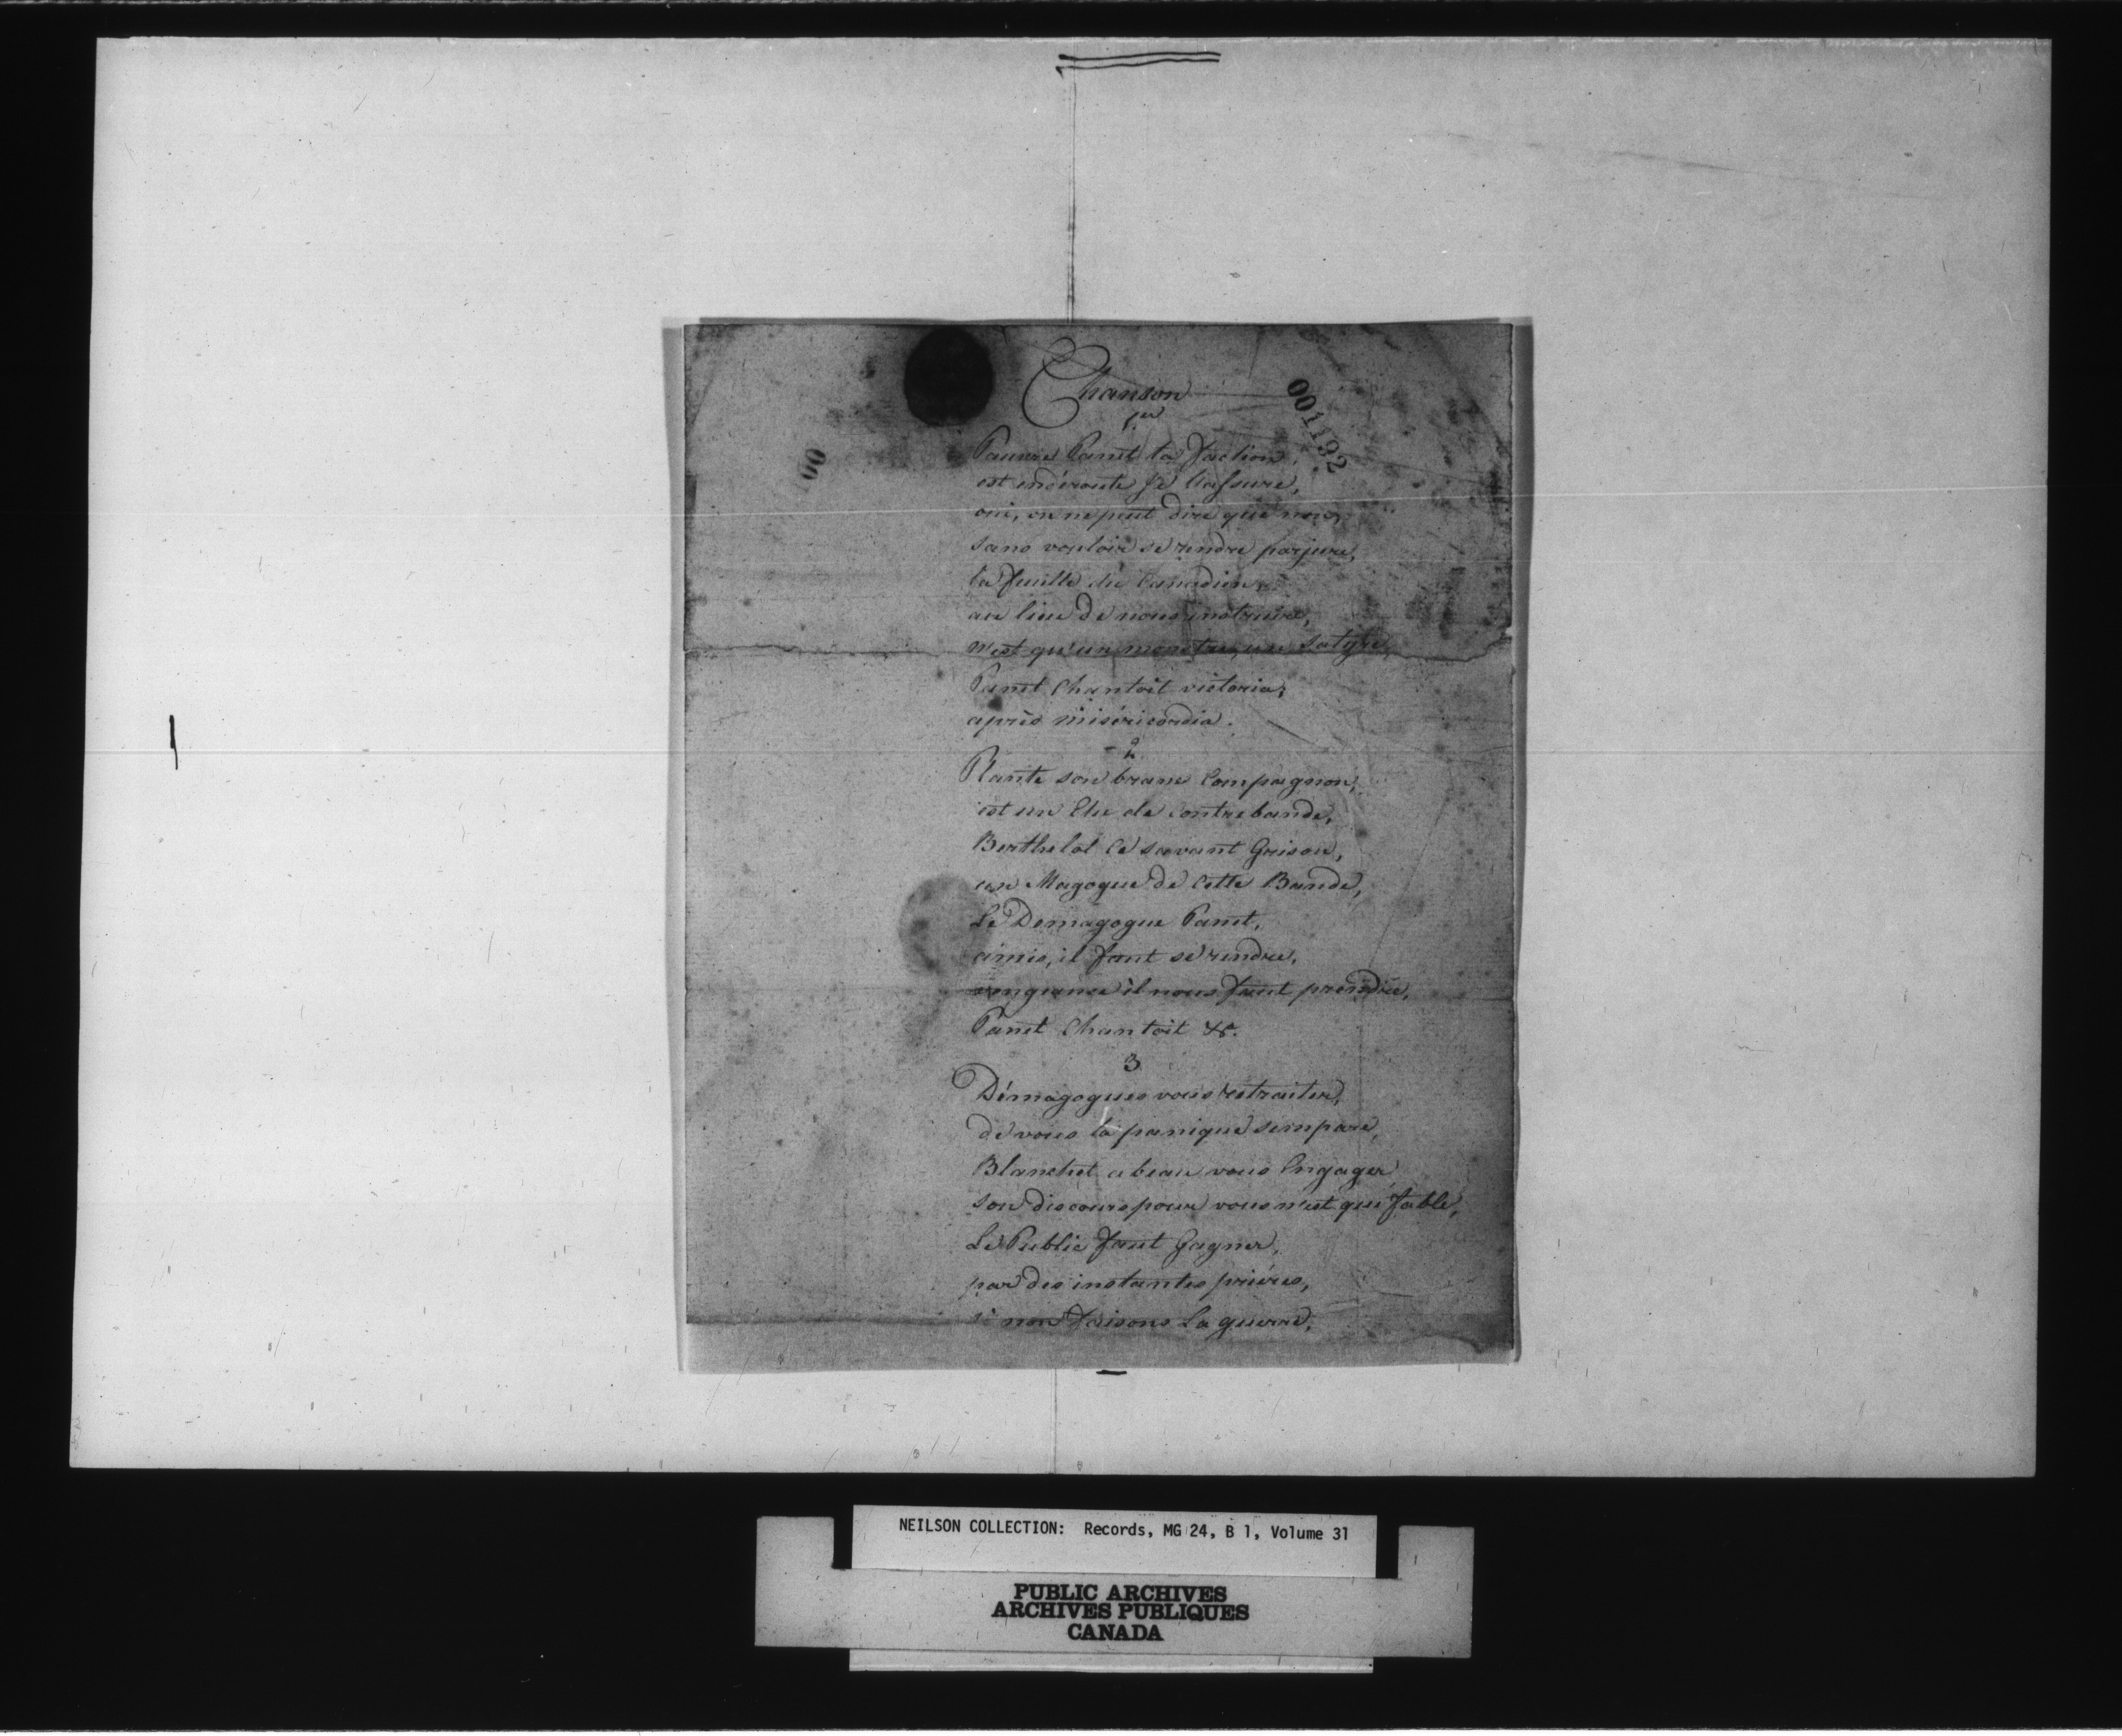 Chanson
001192
1er
00
Pauvre Panet ta faction,
est endéroute je l'assure,
oui, on ne peut dire que non,
sans vouloir se rendre parjure,
la feuille du Canadien,
au lieu de nous instruire,
n'est qu'un monstre, un Satyre,
Panet Chantoit victoria,
après miséricordia.
2
Plante son brave Compagnon,
est un Elu de contrebande,
Berthelot ce savant Grison,
un Magogue de cette Bande,
Le Demagogue Panet,
amis, il faut se rendre,
vengeance il nous faut prendre,
Panet Chantoit &c.
3
Démagogues vous retraiter,
de vous la panique s'empare,
Blanchet a beau vous Engager
son discours pour vous n'est que fable,
Le Public faut Gagner,
par des instantes prières,
si non faisons La guerre,
NEILSON COLLECTION: Records, MG 24, B 1, Volume 31
PUBLIC ARCHIVES
ARCHIVES PUBLIQUES
CANADA